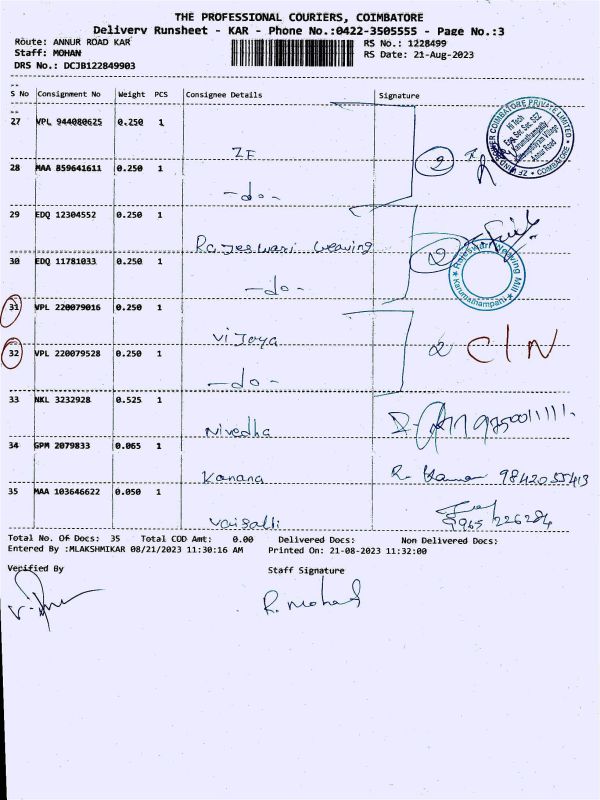 THE PROFESSIONAL COURIERS, COIMBATORE
Delivery Runsheet - KAR - Phone No.:0422-3505555 - Page No.:3
Route: ANNUR ROAD KAR RS No.: 1228499
Staff: MOHAN RS Date: 21-Aug-2023
DRS No.: DCJB122849903
S No Consignment No Weight PCS Consignee Details Signature
27 VPL 944080625 0.250 1
ZF 2
28 MAA 859641611 0.250 1
-do-
29 EDQ 12304552 0.250 1
Rajeswari weaving 2
30 EDQ 11781033 0.250 1
-do-
31 VPL 220079016 0.250 1
Vijaya 2 C/N
32 VPL 220079528 0.250 1
-do-
33 NKL 3232928 0.525 1
Nivedha
34 GPM 2079833 0.065 1
Kanana 9842055413
35 MAA 103646622 0.050 1
Vaisalli 5965/226284
Total No. Of Docs: 35 Total COD Amt: 0.00 Delivered Docs: Non Delivered Docs:
Entered By :MLAKSHMIKAR 08/21/2023 11:30:16 AM Printed On: 21-08-2023 11:32:00
Verified By Staff Signature
R. Mohan
ZF WIND POWER COIMBATORE PRIVATE LIMITED
Hi Tech
Annur Road
* COIMBATORE *
Rajeswari Weaving Mill
* Karumathampatti *